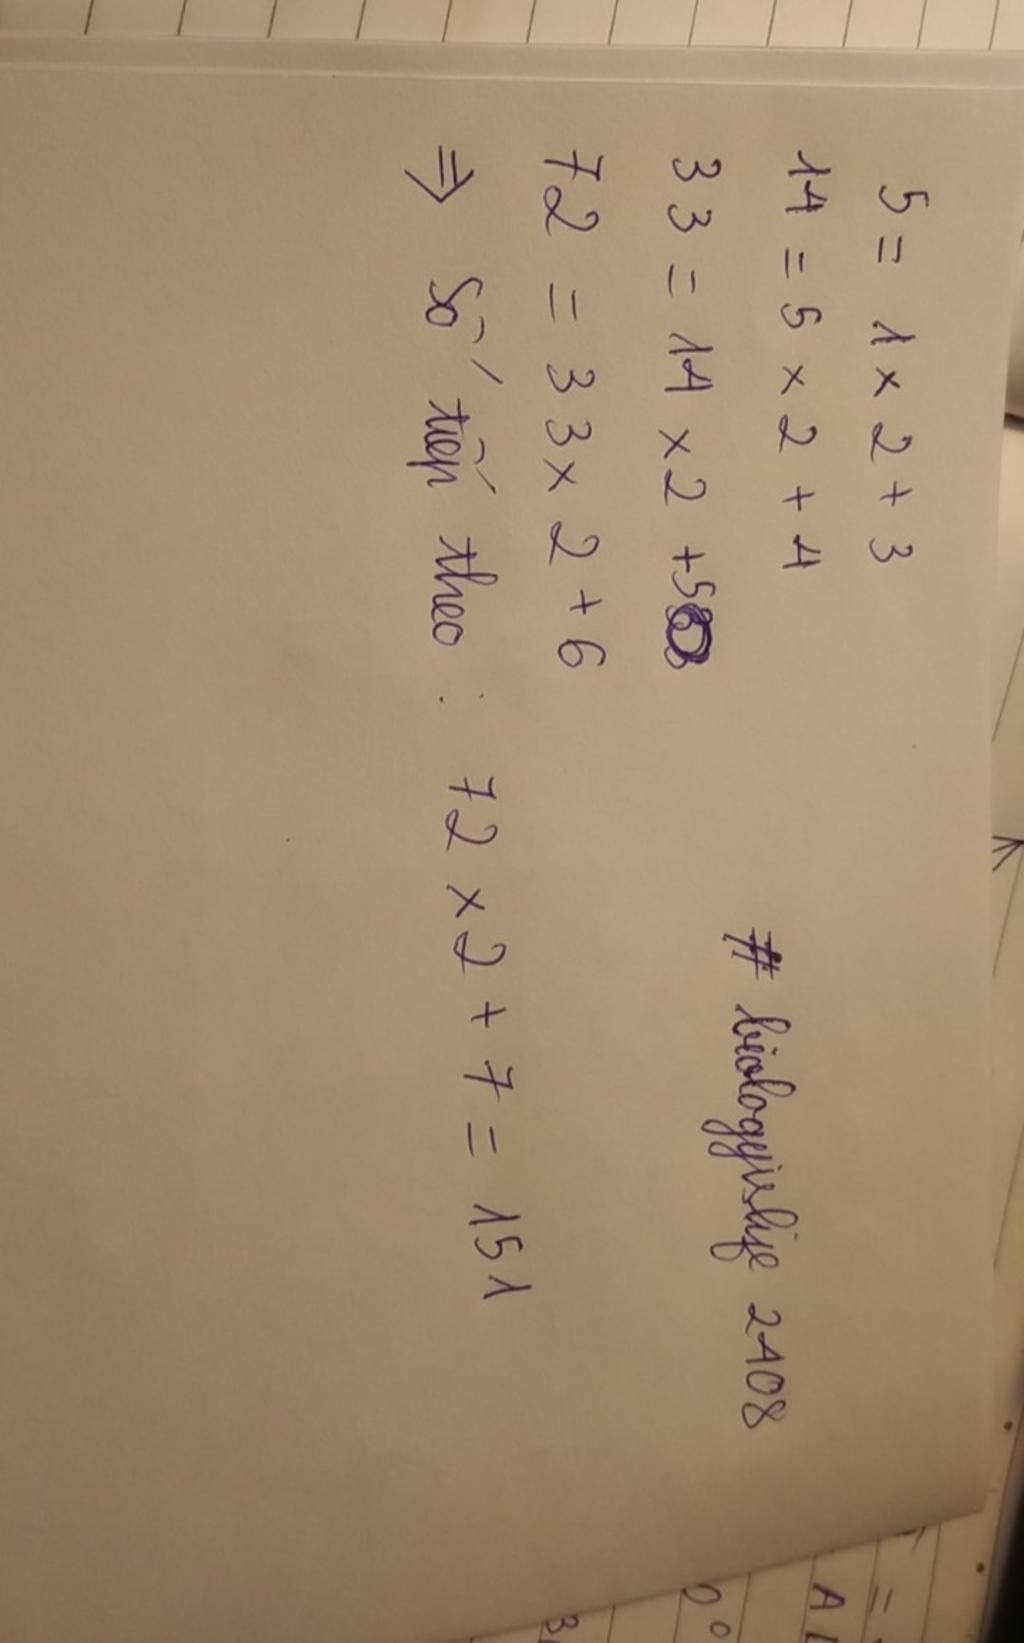 5 = 1 x 2 + 3
14 = 5 x 2 + 4
33 = 14 x 2 + 5
72 = 33 x 2 + 6
⇒ Số tiếp theo : 72 x 2 + 7 = 151
# biologyislife 2408